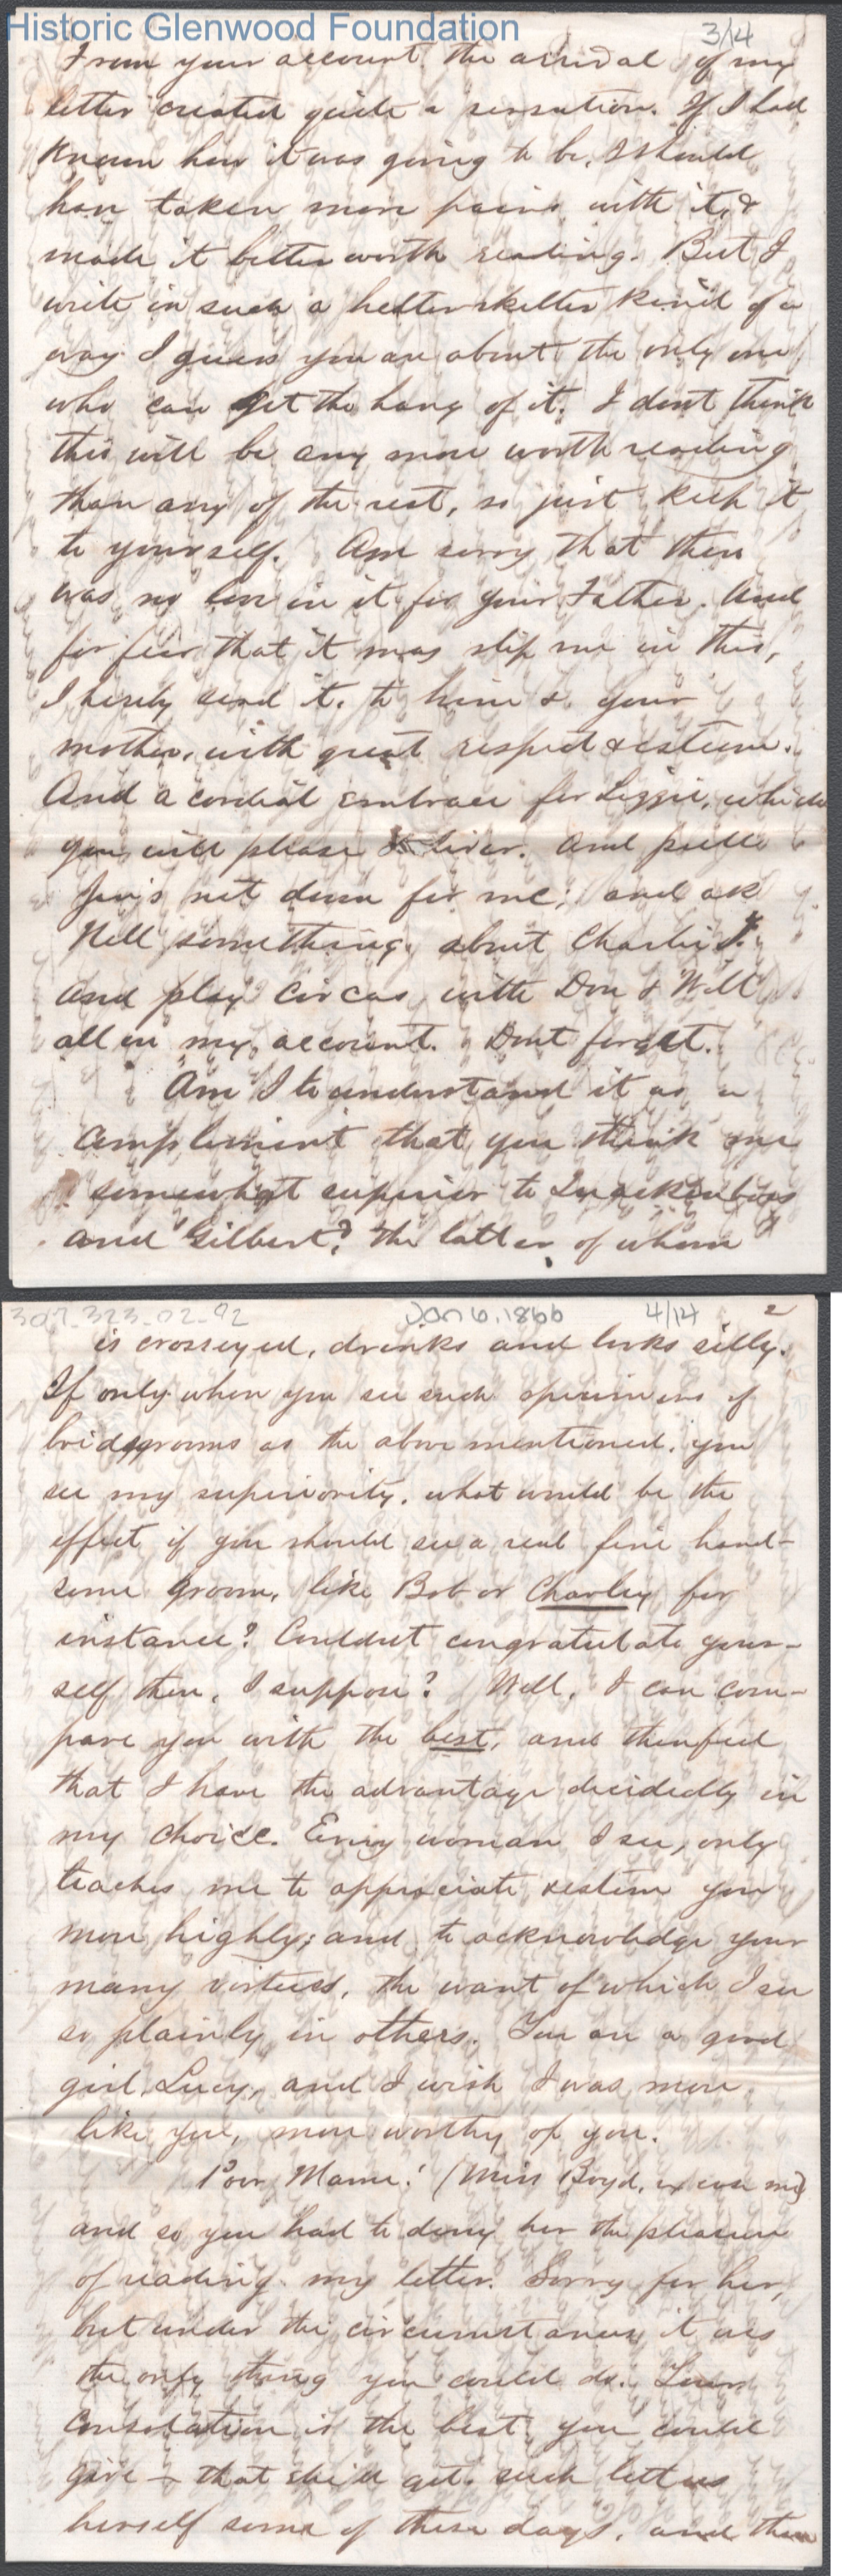 Historic Glenwood Foundation
3/14
From your account, the arrival of my
letter created quite a sensation. If I had
known how it was going to be, I should
have taken more pains with it, &
made it better worth reading. But I
write in such a helter skelter kind of a
way I guess you are about the only one
who can get the hang of it. I dont think
this will be any more worth reading
than any of the rest, so just keep it
to yourself. Am sorry that there
was no love in it for your Father. And
for fear that it may slip me in this,
I hereby send it. to him & your
mother, with great respect & esteem.
And a cordial embrace for Lizzie, which
you will please deliver. And pull
Jen's net down for me; and ask
Nell something about Charlie
and play circus with Don & Will
all on my account. Dont forget.
Am I to understand it as a
compliment that you think me
somewhat superior to Quackenboss
and Gilbert? the latter of whom
307-323-02-92 Jan 6, 1866 4/14 2
is crosseyed, drinks and looks silly.
If only when you see such specimens of
bridegrooms as the above mentioned, you
see my superiority, what would be the
effect if you should see a real fine hand-
some groom, like Bob or Charley for
instance? Couldnt congratulate your-
self then, I suppose? Well, I can com-
pare you with the best, and then feel
that I have the advantage decidedly in
my choice. Every woman I see, only
teaches me to appreciate & esteem you
more highly; and to acknowledge your
many virtues, the want of which I see
so plainly in others. You are a good
girl, Lucy, and I wish I was more
like you, more worthy of you.
Poor Mame! (Miss Boyd, excuse me)
and so you had to deny her the pleasure
of reading my letter. Sorry for her,
but under the circumstances it was
the only thing you could do. Your
consolation is the best you could
give - that she'll get such letters
herself some of these days, and then